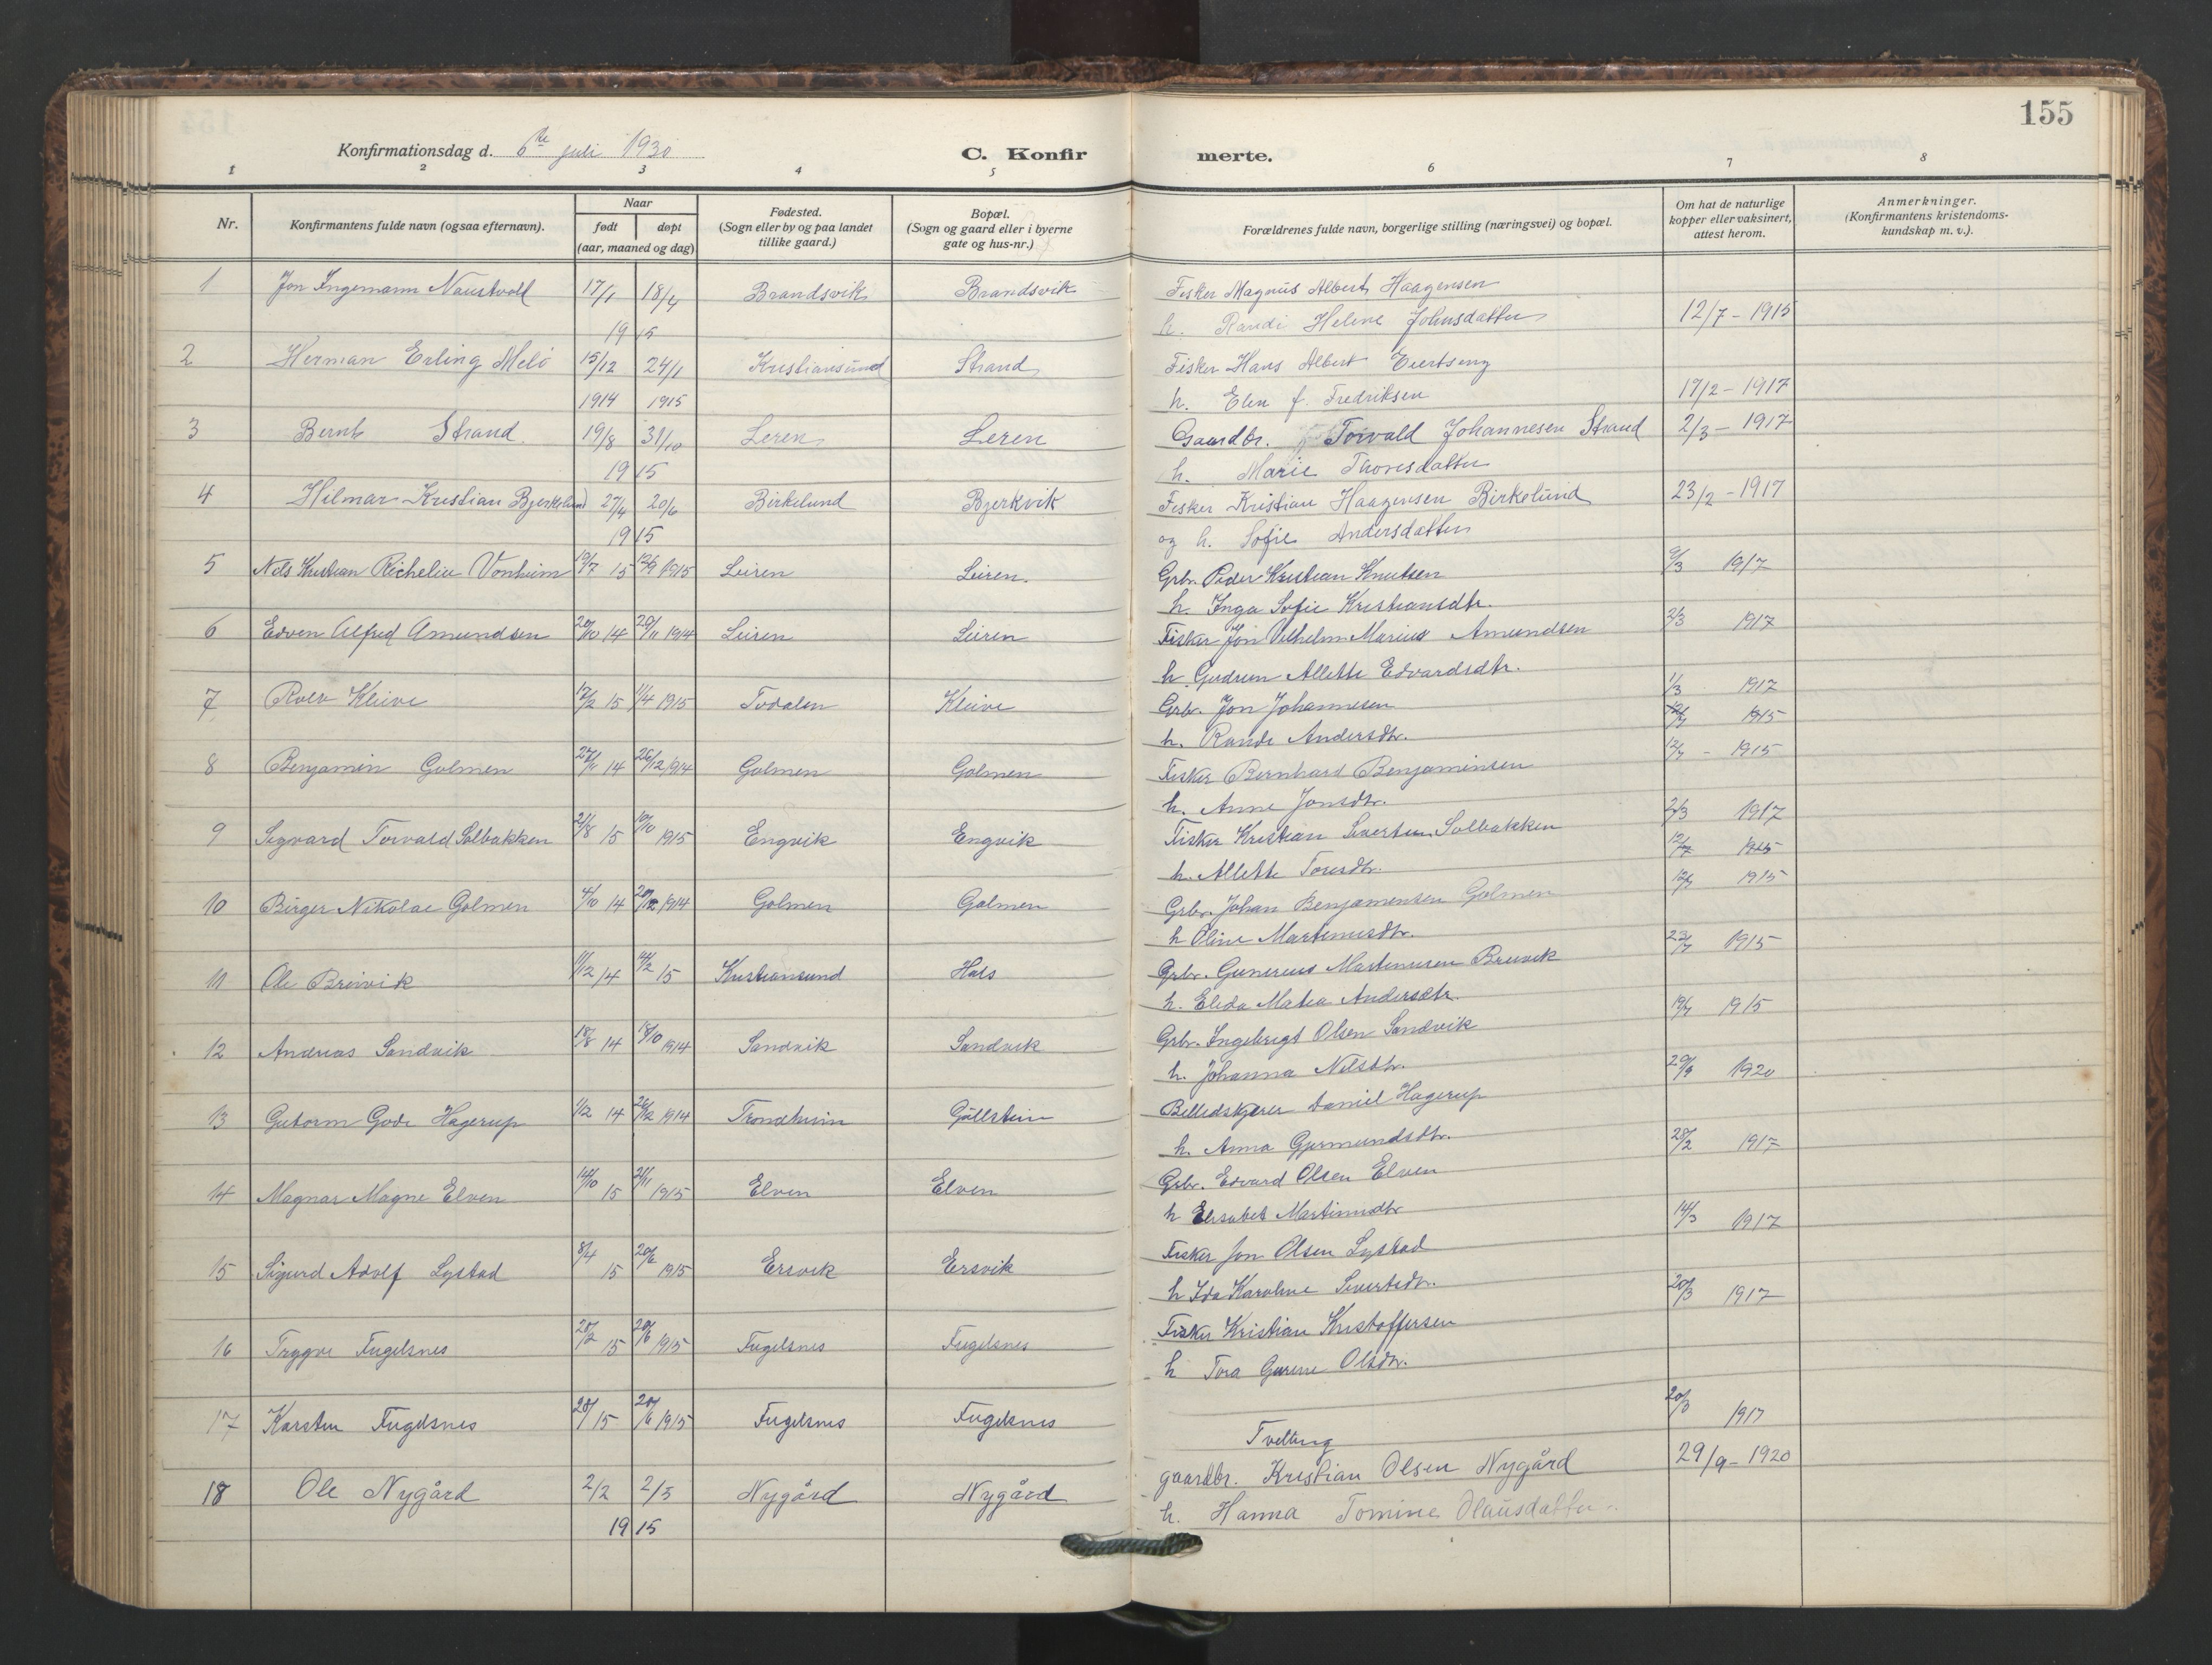 155
Konfirmationsdag d. 6te juli 1930
C. Konfir
merte.
1 2 3 4 5 6 7 8
Nr.
Konfirmantens fulde navn (ogsaa efternavn).
Naar
født
døpt
(aar, maaned og dag)
Fødested.
(Sogn eller by og paa landet
tillike gaard.)
Bopæl.
(Sogn og gaard eller i byerne
gate og hus-nr.)
Forældrenes fulde navn, borgerlige stilling (næringsvei) og bopæl.
Om hat de naturlige
kopper eller vaksinert,
attest herom.
Anmerkninger.
(Konfirmantens kristendoms-
kundskap m. v.).
1 Jon Ingemann Naustvoll 17/1 18/4 Brandsvik Brandsvik Fisker Magnus Albert Haagensen
1915 h. Randi Helene Johnsdatter 12/7 - 1915
2 Herman Erling Melö 15/12 24/1 Kristiansund Strand Fisker Hans Albert
1914 1915 h. Elen f. Fredriksen 17/2 - 1917
3 Bernt Strand 19/8 31/10 Leren Leren Gaardbr. Torvald Johannesen Strand 2/3 - 1917
1915 h. Marie Thoresdatter
4 Hilmar Kristian Bjerkelund 27/4 20/6 Birkelund Bjerkvik Fisker Kristian Haagensen Birkelund 23/2 - 1917
1915 og h. Sofie Andersdatter
5 Nils Kristian Richeliu Vonheim 19/7 15 12/9 1915 Leiren Leiren. Grbr. Peder Kristian Knutsen 9/3 1917
h. Inga Sofie Kristiansdtr.
6 Edven Alfred Amundsen 20/10 14 29/11 1914 Leiren Leiren Fisker Jon Vilhelm Marius Amundsen 2/3 1917
h. Gudrun Allette Edvardsdtr.
7 Rolv Kleive 17/2 15 11/4 1915 Todalen Kleive Grbr. Jon Johannesen 1/3 1917
h. Rande Andersdtr. 12/7 1915
8 Benjamin Golmen 27/11 14 26/12 1914 Golmen Golmen Fisker Bernhard Benjaminsen 12/7 - 1915
h. Anne Jonsdtr.
9 Sigvard Torvald Solbakken 21/8 15 10/10 1915 Engvik Engvik Fisker Kristian Sivertsen Solbakken 2/3 1917
h. Allette Toresdtr. 12/7 1915
10 Birger Nikolae Golmen 4/10 14 20/12 1914 Golmen Golmen Grbr. Johan Benjamensen Golmen 12/7 1915
h Oline Martinusdtr.
11 Ole Breivik 11/12 14 14/2 15 Kristiansund Hals Grbr. Gunerius Martinusen Breivik 23/7 1915
h. Elida Matea Andersdtr.
12 Andreas Sandvik 18/8 14 18/10 1914 Sandvik Sandvik Grbr. Ingebrigt Olsen Sandvik 19/7 1915
h. Johanna Nilsdtr.
13 Gutorm Gode Hagerup 1/2 14 26/12 1914 Trondheim Gullstein Billedskjærer Daniel Hagerup 29/9 1920
h. Anna Gjermundsdtr.
14 Magnar Magne Elven 14/10 15 21/11 1915 Elven Elven Grbr. Edvard Olsen Elven 28/2 1917
h Elisabet Martinusdtr
15 Sigurd Adolf Lystad 8/4 15 20/6 1915 Ersvik Ersvik Fisker Jon Olsen Lystad 14/3 1917
h Ida Karoline Sivertsdtr.
16 Trygve Fugelsnes 28/2 15 20/6 1915 Fugelsnes Fugelsnes Fisker Kristian Kristoffersen 20/3 1917
h Tora Gurine Olsdtr.
17 Karsten Fugelsnes 15 20/6 1915 Fugelsnes Fugelsnes Tvelling 20/3 1917
18 Ole Nygård 2/2 2/5 Nygård Nygård gaardbr. Kristian Olsen Nygård 29/9 - 1920
1915 h. Hanna Tomine Olausdatter